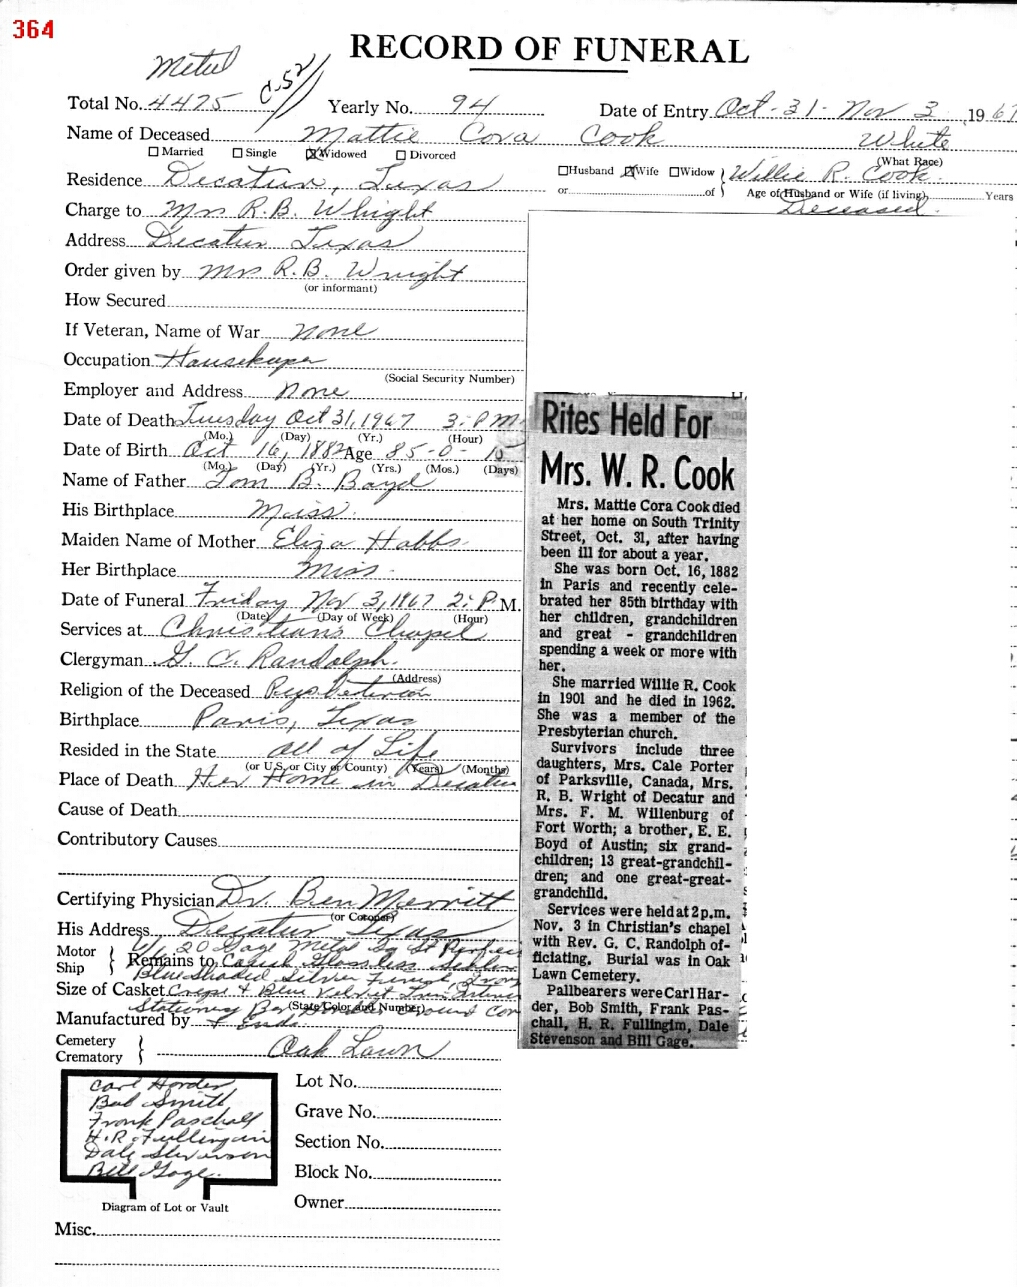 364
RECORD OF FUNERAL
Metal
C-52
Total No. 4475 Yearly No. 94 Date of Entry Oct-31- Nov 3, 196
Name of Deceased Mattie Cora Cook White
Married Single Widowed Divorced (What Race)
Residence Decatur, Texas Husband Wife Widow Willie R. Cook
or of Age of Husband or Wife (if living) Years
Deceased.
Charge to Mrs R.B. Whight
Address Decatur Texas
Order given by Mrs R.B. Wright
(or informant)
How Secured
If Veteran, Name of War none
Occupation Housekeeper
(Social Security Number)
Employer and Address none
Date of Death Tuesday Oct 31, 1967 3: PM
(Mo.) (Day) (Yr.) (Hour)
Date of Birth Oct 16, 1882 Age 85-0-15
(Mo.) (Day) (Yr.) (Yrs.) (Mos.) (Days)
Name of Father Tom B. Boyd
His Birthplace Miss.
Maiden Name of Mother Eliza Habbs.
Her Birthplace Miss.
Date of Funeral Friday Nov 3, 1867 2: P.M.
(Date) (Day of Week) (Hour)
Services at Christians Chapel
Clergyman G. C. Randolph.
(Address)
Religion of the Deceased
Birthplace Paris, Texas
Resided in the State all of Life
(or U.S. or City or County) (Years) (Months)
Place of Death Her Home in Decatur
Cause of Death
Contributory Causes
Certifying Physician Dr. Ben Merritt
(or Coroner)
His Address Decatur Texas
Motor
Ship
Remains to
6/6 20 Gage Metal
Blue Shaded Silver Finish
Size of Casket Crepe & Blue Velvet
(State Color and Number)
Stationery
Manufactured by & Ends
Cemetery
Crematory
Oak Lawn
Carl Harder
Bob Smith
Frank Paschall
H.R. Fullingim
Dale Stevenson
Bill Gage.
Diagram of Lot or Vault
Lot No.
Grave No.
Section No.
Block No.
Owner
Misc.
Rites Held For
Mrs. W. R. Cook
Mrs. Mattie Cora Cook died
at her home on South Trinity
Street, Oct. 31, after having
been ill for about a year.
She was born Oct. 16, 1882
in Paris and recently cele-
brated her 85th birthday with
her children, grandchildren
and great - grandchildren
spending a week or more with
her.
She married Willie R. Cook
in 1901 and he died in 1962.
She was a member of the
Presbyterian church.
Survivors include three
daughters, Mrs. Cale Porter
of Parksville, Canada, Mrs.
R. B. Wright of Decatur and
Mrs. F. M. Willenburg of
Fort Worth; a brother, E. E.
Boyd of Austin; six grand-
children; 13 great-grandchil-
dren; and one great-great-
grandchild.
Services were held at 2 p.m.
Nov. 3 in Christian's chapel
with Rev. G. C. Randolph of-
ficiating. Burial was in Oak
Lawn Cemetery.
Pallbearers were Carl Har-
der, Bob Smith, Frank Pas-
chall, H. R. Fullingim, Dale
Stevenson and Bill Gage.